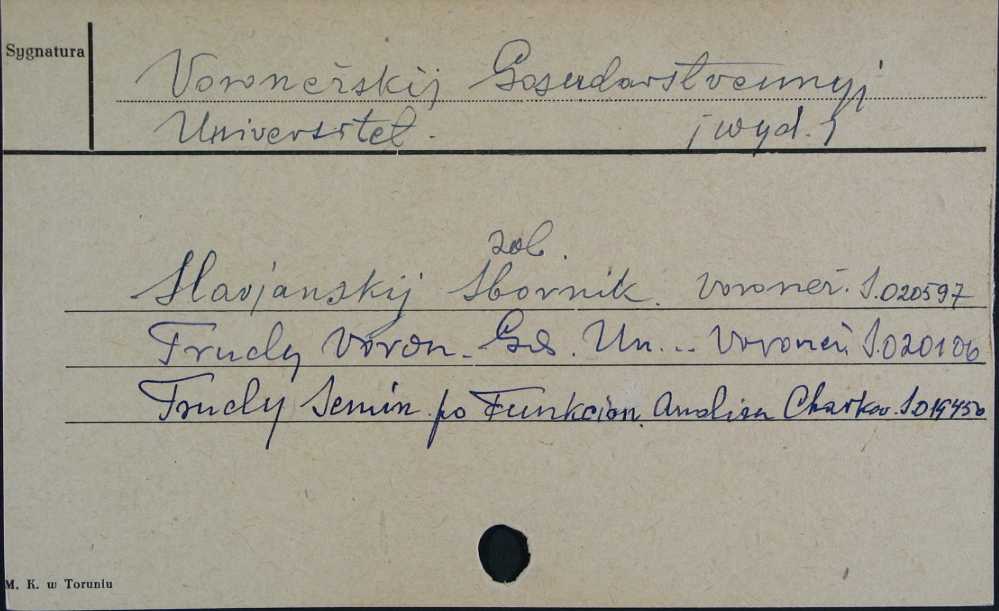 Sygnatura
Voronežskij Gosudarstvennyj
Universitet. / wyd. /
zob.
Slavjanskij Sbornik. Voronež. S.020597
Trudy Voron. Gos. Un... Voronež S.020106
Trudy Semin. po Funkcion. Analizu Charkov. S.019450
M. K. w Toruniu